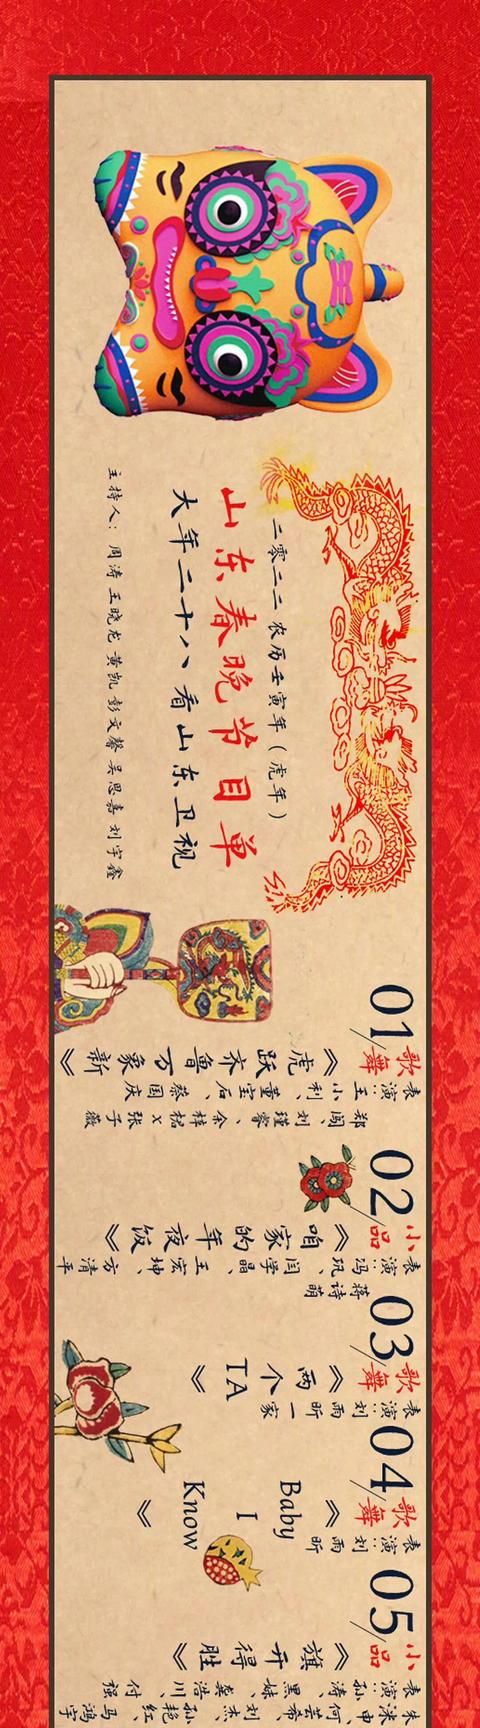 二零二二 农历壬寅年（虎年）
山东春晚节目单
大年二十八看山东卫视
主持人：周涛 王晓龙 黄凯 彭文馨 吴思嘉 刘宇鑫
01/歌舞
《虎跃齐鲁万象新》
表演：王小利、董宝石、蔡国庆
郑闯、刘瑾睿、余梓 x 张子薇
02/小品
《咱家的年夜饭》
表演：冯巩、闫学晶、王宏坤、方清平
蒋诗萌
03/歌舞
《两个TA》
表演：刘雨昕一家
04/歌舞
《Baby I Know》
表演：刘雨昕
05/小品
《旗开得胜》
表演：孙涛、黑妹、龚浩川、付强
何芸希、刘杰、孙艳红、马鸿宇